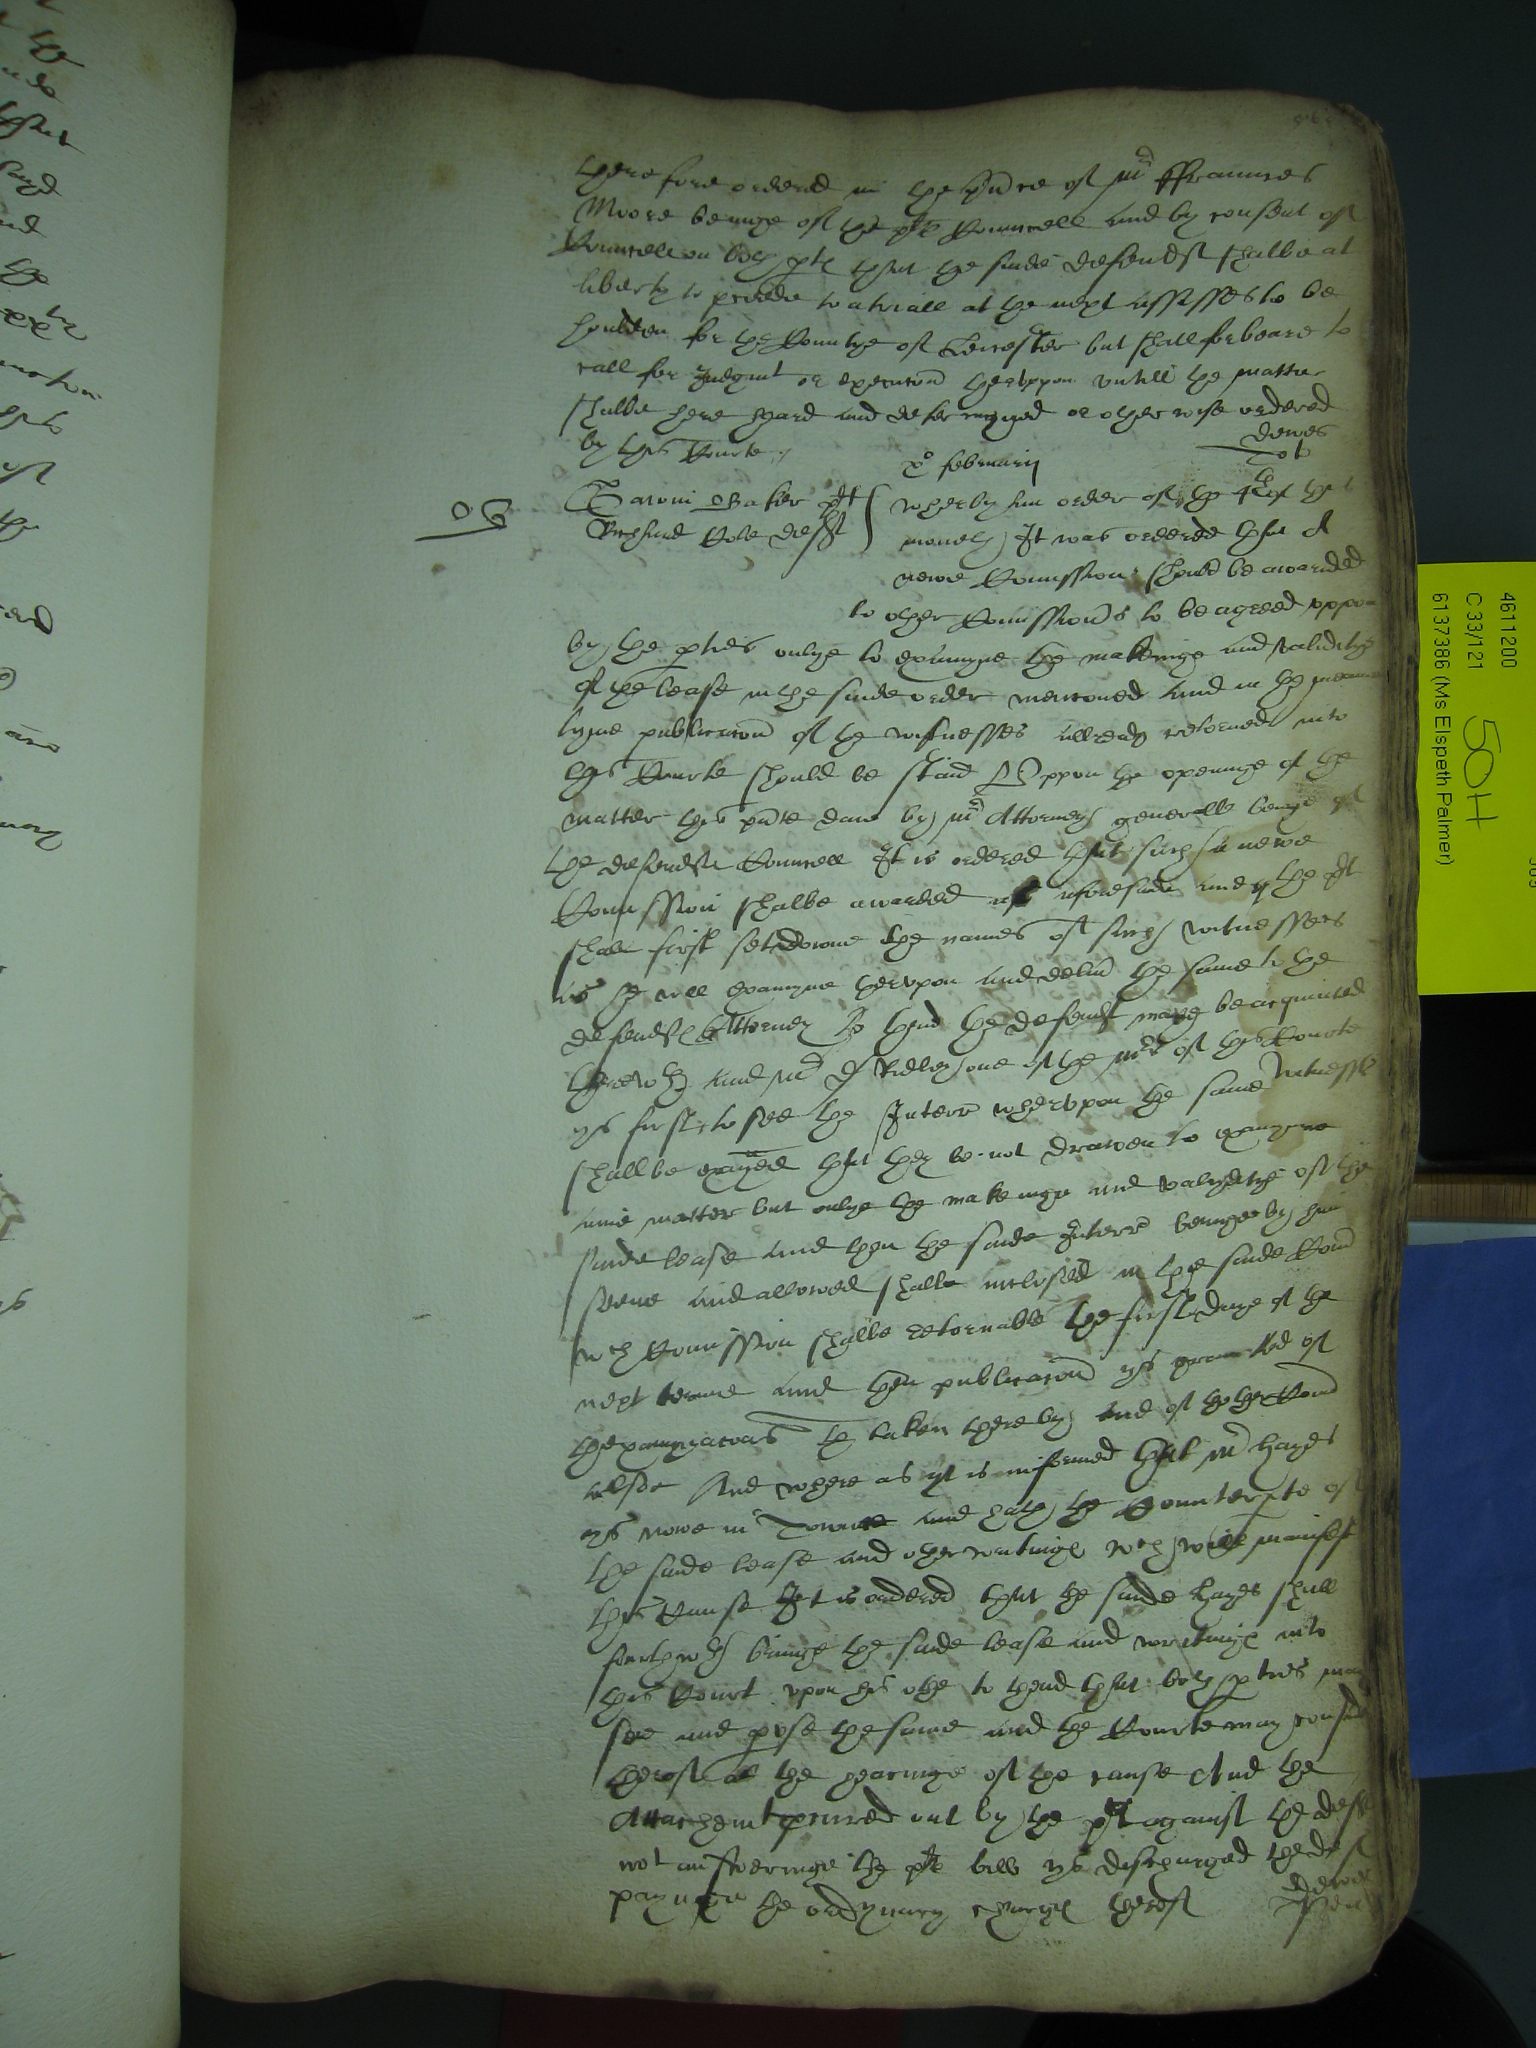 therefore ordered in the p̃nce of Mr ffraunces
Moore beinge of the plts Councell and by consent of
Councell on both ptes that the saide defendt shalbe at
libertie to procede to a triall at the next assisses to be
houlden for the Countye of Leicester but shall forbeare to
call for Judgmt or execucon therevppon vntill the matter
shalbe here heard and determyned or otherwise ordered
by this Courte
x° februarij
Baker plt
Richard Cole defendt
Whereby an order of the of this
moneth It was ordered that A
newe Comission should be awarded
to other Comissioners to be agreed vppon
by the pties onlye to examyne the makeinge and validitye
of the lease in the saide order menconed And in the meane
tyme publicacon of the witnesses allready retorned into
this Courte should be staied Vppon the openinge of the
matter this p̃nte daie by Mr Attorney generall beinge of
the defendts Councell It is ordered that such a newe
Comission shalbe awarded as aforesaide and the plt
shall first set downe the names of such witnesses
as he will examyne herevpon and deliver the same to the
defendts Attorney to thend the defendt maye be acquainted
therewth and Mr D Ridley one of the Mrs of this Courte
ys first to see the Interr whervpon the same witnesses
shall be examyed that they be not drawen to examyne
anie matter but onlye the makeinge and validitye of the
saide lease and then the saide Interr beinge by him
seene and allowed shalbe inclosed in the saide Comission
wch Comission shalbe retornable the first daye of the
next terme and then publicacon ys graunted of
thexamynacons taken thereby and of thother
alsoe And where as yt is informed that Mr Hayes
ys nowe in Towne and hath the Counterpte of
the saide lease and other writings wch will manifest
this Cause It is ordered that the saide Hayes shall
forthwth bringe the saide lease and writings into
this Court vpon his othe to thend that both pties may
see and pvse the same and the Courte may consider
thereof at the hearinge of the cause And the
Attachemt procured out by the plt against the defendt
not answeringe the plts bill ys discharged the deft
payinge the ordynary charges thereof
4611200
C 33/121
50H
6137386 (Ms Elspeth Palmer)